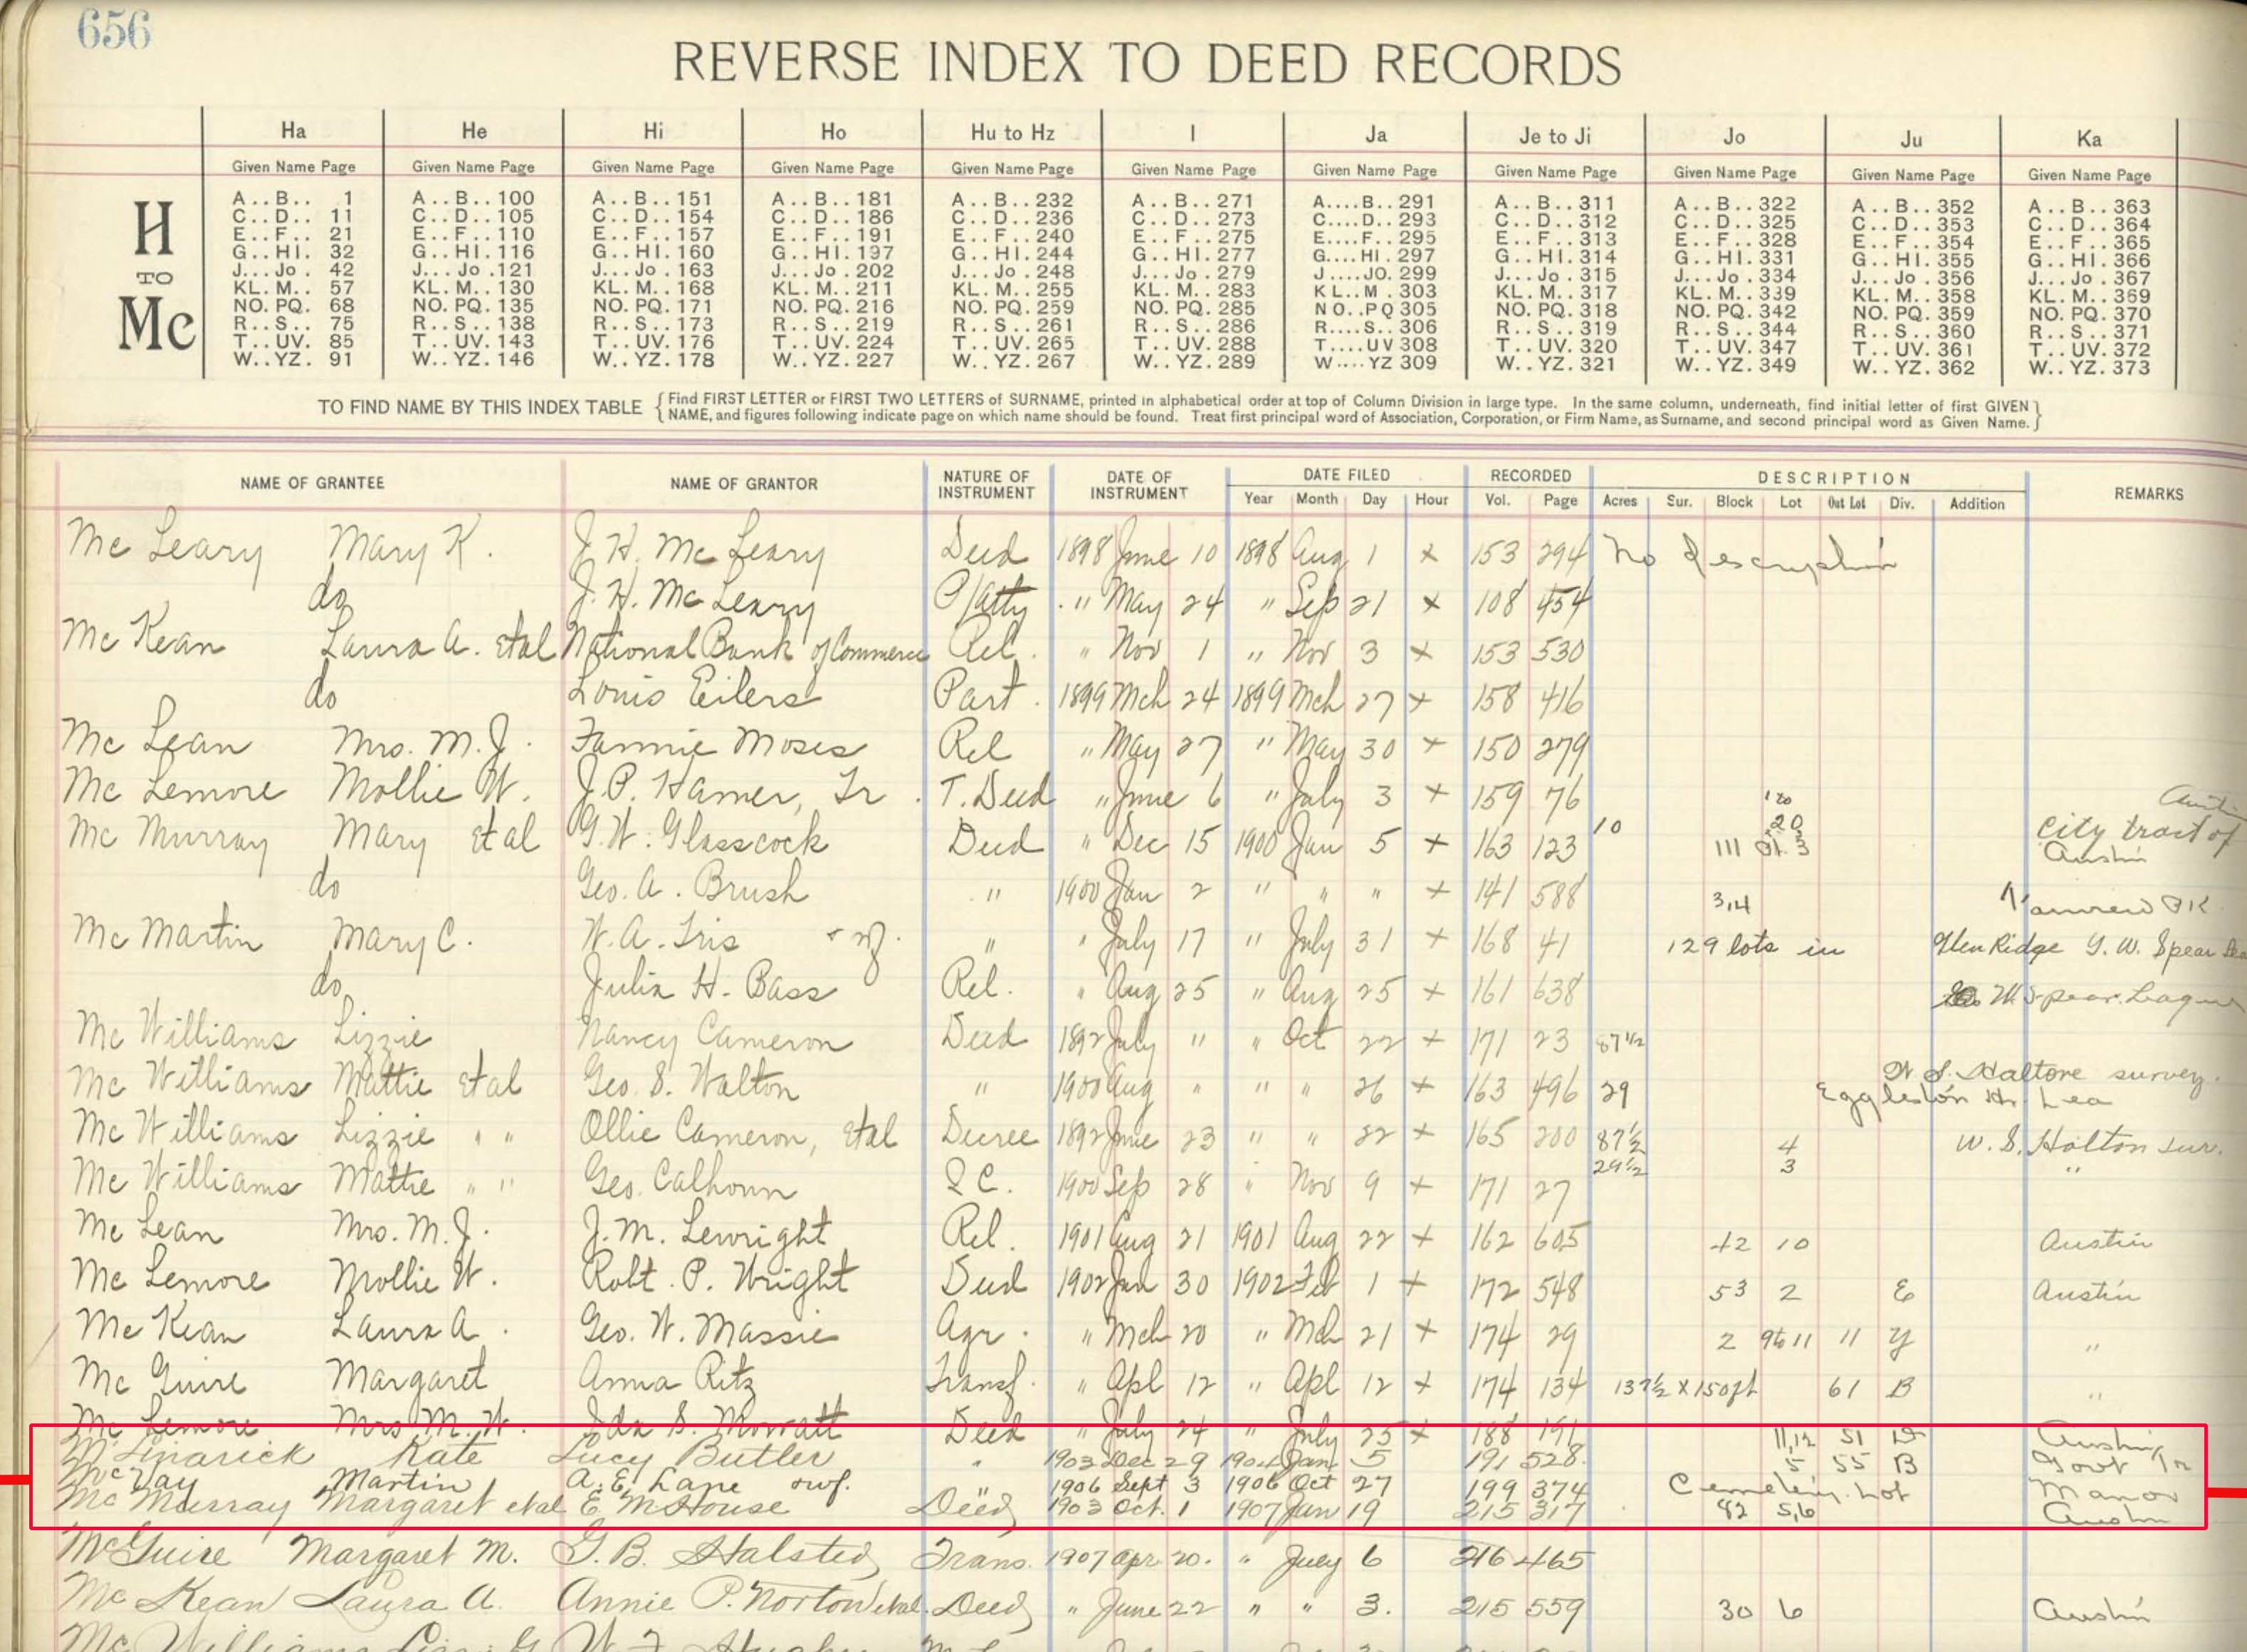 656
REVERSE INDEX TO DEED RECORDS
H TO Mc
Ha He Hi Ho Hu to Hz I Ja Je to Ji Jo Ju Ka
Given Name Page Given Name Page Given Name Page Given Name Page Given Name Page Given Name Page Given Name Page Given Name Page Given Name Page Given Name Page Given Name Page
A..B.. 1 A..B..100 A..B..151 A..B..181 A..B..232 A..B..271 A....B..291 A..B..311 A..B..322 A..B..352 A..B..363
C..D.. 11 C..D..105 C..D..154 C..D..186 C..D..236 C..D..273 C....D..293 C..D..312 C..D..325 C..D..353 C..D..364
E..F.. 21 E..F..110 E..F..157 E..F..191 E..F..240 E..F..275 E....F..295 E..F..313 E..F..328 E..F..354 E..F..365
G..HI. 32 G..HI.116 G..HI.160 G..HI.197 G..HI.244 G..HI.277 G....HI.297 G..HI.314 G..HI.331 G..HI.355 G..HI.366
J...Jo. 42 J...Jo.121 J...Jo.163 J...Jo.202 J...Jo.248 J...Jo.279 J....JO.299 J...Jo.315 J...Jo.334 J...Jo.356 J...Jo.367
KL.M.. 57 KL.M..130 KL.M..168 KL.M..211 KL.M..255 KL.M..283 KL..M.303 KL.M..317 KL.M..339 KL.M..358 KL.M..369
NO.PQ. 68 NO.PQ.135 NO.PQ.171 NO.PQ.216 NO.PQ.259 NO.PQ.285 NO..PQ305 NO.PQ.318 NO.PQ.342 NO.PQ.359 NO.PQ.370
R..S.. 75 R..S..138 R..S..173 R..S..219 R..S..261 R..S..286 R....S..306 R..S..319 R..S..344 R..S..360 R..S..371
T..UV. 85 T..UV.143 T..UV.176 T..UV.224 T..UV.265 T..UV.288 T....UV308 T..UV.320 T..UV.347 T..UV.361 T..UV.372
W..YZ. 91 W..YZ.146 W..YZ.178 W..YZ.227 W..YZ.267 W..YZ.289 W....YZ309 W..YZ.321 W..YZ.349 W..YZ.362 W..YZ.373
TO FIND NAME BY THIS INDEX TABLE {Find FIRST LETTER or FIRST TWO LETTERS of SURNAME, printed in alphabetical order at top of Column Division in large type. In the same column, underneath, find initial letter of first GIVEN
NAME, and figures following indicate page on which name should be found. Treat first principal word of Association, Corporation, or Firm Name, as Surname, and second principal word as Given Name.}
NAME OF GRANTEE NAME OF GRANTOR NATURE OF INSTRUMENT DATE OF INSTRUMENT DATE FILED RECORDED DESCRIPTION REMARKS
Year Month Day Hour Vol. Page Acres Sur. Block Lot Out Lot Div. Addition
Mc Leary Mary K. J. H. Mc Leary Deed 1898 June 10 1898 Aug 1 x 153 294 No description
do J. H. Mc Leary P/atty " May 24 " Sep 21 x 108 454
Mc Kean Laura A. etal National Bank of Commerce Rel. " Nov 1 " Nov 3 x 153 530
do Louis Eilers Part. 1899 Mch 24 1899 Mch 27 x 158 416
Mc Lean Mrs. M. J. Fannie Moses Rel " May 27 " May 30 x 150 279
Mc Lemore Mollie W. J. P. Hamer, Tr. T. Deed " June 6 " July 3 x 159 76
Mc Murray Mary etal G. W. Glasscock Deed " Dec 15 1900 Jan 5 x 163 123 10 111 City tract of Austin
do Geo. A. Brush " 1900 Jan 2 " " " x 141 588 3,4
Mc Martin Mary C. W. A. " July 17 " July 31 x 168 41 129 lots in Glen Ridge Spear
do Julia H. Bass Rel. " Aug 25 " Aug 25 x 161 638 Spear League
Mc Williams Lizzie Nancy Cameron Deed 1892 July " " Oct 22 x 171 23 87½
Mc Williams Mattie etal Geo. S. Walton " 1900 Aug " " " 26 x 163 496 29 survey.
Mc Williams Lizzie " " Ollie Cameron, etal Decree 1892 June 23 " " 22 x 165 200 87½ 4 W. S. Holton sur.
Mc Williams Mattie " " Geo. Calhoun Q C. 1900 Sep 28 " Nov 9 x 171 27 29½ 3 "
Mc Lean Mrs. M. J. J. M. Lewright Rel. 1901 Aug 21 1901 Aug 22 x 162 605 42 10 Austin
Mc Lemore Mollie W. Robt. P. Wright Deed 1902 Jan 30 1902 Feb 1 x 172 548 53 2 E Austin
Mc Kean Laura A. Geo. W. Massie Agr. " Mch 20 " Mch 21 x 174 29 2 9to11 11 Y "
Mc Guire Margaret Anna Ritz Transf. " Apl 12 " Apl 12 x 174 134 137½ x 150 ft 61 B "
Mc Lemore Mrs M. W. Ida S. Deed " July 24 " July 25 x 188 191 11,12 51 Austin
Kate Lucy Butler " 1903 Dec 29 1904 Jan 5 191 528 5 55 B
Martin A. E. Lane " 1906 Sept 3 1906 Oct 27 199 374 Cemetery Lot Manor
Mc Murray Margaret etal E M House Deed 1903 Oct. 1 1907 Jan 19 215 317 92 5,6 Austin
McGuire Margaret M. G. B. Halsted Trans. 1907 Apr 20. " July 6 216 465
Mc Kean Laura A. Annie P. Norton etal. Deed " June 22 " " 3. 215 559 30 6 Austin